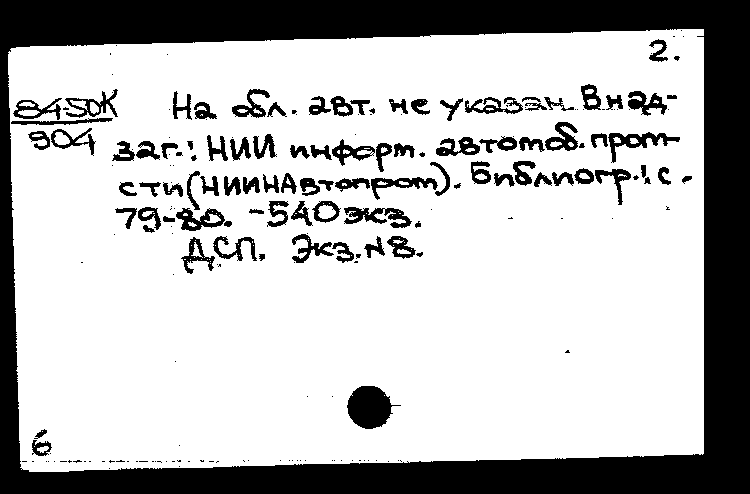 2.
84-50К На обл. авт. не указан. В над-
904
заг.: НИИ информ. автомоб. пром-
сти (НИИНАвтопром). Библиогр.: с.
79-80. - 540 экз.
ДСП. Экз. №8.
6